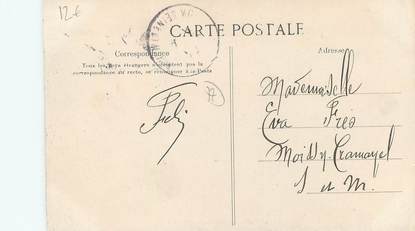 12€
CARTE POSTALE
Correspondance
Adresse
Tous les Pays étrangers n'acceptent pas la
correspondance au recto, se renseigner à la Poste
Mademoiselle
Eva Frès
Moissy-Cramayel
S et M.